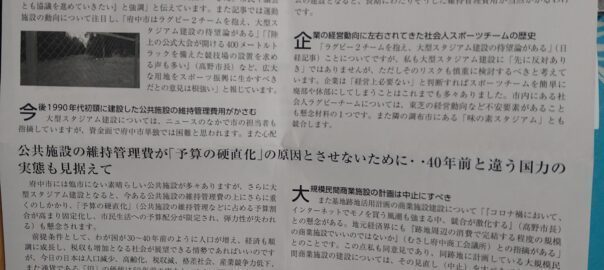 とも協議を進めていきたい」と強調」と伝えています。また記事では運動
施設の動向について注目し、「府中市はラグビー2チームを抱え、大型ス
タジアム建設の待望論がある」「『陸
上の公式大会が開ける400メートルト
ラックを備えた競技場の設置を求め
る声も多い」(高野市長)など、広大
な用地をスポーツ振興に生かすべき
だとの意見は根強い」と報じています。
今後1990年代初頭に建設した公共施設の維持管理費用がかさむ
大型スタジアム建設については、ニュースのなかで市の担当者も
指摘していますが、資金面で府中市単独では困難と思われます。また心配
企業の経営動向に左右されてきた社会人スポーツチームの歴史
「ラグビー2チームを抱え、大型スタジアム建設の待望論がある」(日
経記事)ことについてですが、私も大型スタジアム建設を「先に反対あり
き」ではありませんが、ただしそのリスクも慎重に検討するべきと考えて
います。企業は「経営上必要ない」と判断すればスポーツチームを簡単に
廃部や休部にしてしまうことはこれまでも多々ありました。市内にある社
会人ラグビーチームについては、東芝の経営動向など不安要素があること
も懸念材料の1つです。また隣の調布市にある「味の素スタジアム」とも
競合します。
公共施設の維持管理費が「予算の硬直化」の原因とさせないために・・40年前と違う国力の
実態も見据えて
府中市には他市にない素晴らしい公共施設が多々ありますが、さらに大
型スタジアム建設となると、今ある公共施設の維持管理費の上にさらに重
くのしかかり、「予算の硬直化」(公共施設の維持管理などに占める予算割
合が高まり固定化し、市民生活への予算配分が限定され、弾力性が失われ
る)も懸念されます。
前提条件として、わが国が30～40年前のように人口が増え、経済も順
調に成長し、税収も増加となる社会が展望できる情勢であればいいのです
が、今日の日本は人口減少、高齢化、税収減、格差社会、産業競争力低下、
大規模民間商業施設の計画は中止にすべき
また基地跡地活用計画の商業施設建設について「『コロナ禍において、
インターネットでモノを買う風潮も強まる中、競合が激化する」(高野市長)
との懸念がある。地元経済界にも『跡地周辺の消費で完結する程度の規模
の商業施設でいいのではないか』(むさし府中商工会議所)との指摘がある」
とのことです。この点私も同意見であり、同跡地に計画している大規模民
間商業施設の建設については、その見直し(中止)を